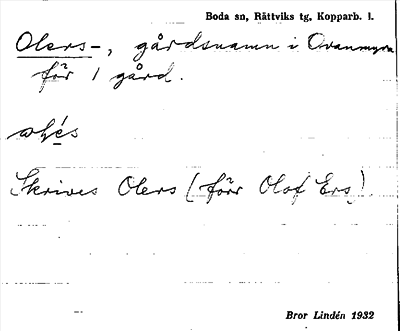 Boda sn, Rättviks tg, Kopparb. l.
Olers-, gårdsnamn i Ovanmyra
för 1 gård.
Skrives Olers (förr Olof Ers).
Bror Lindén 1932